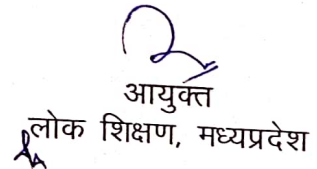 आयुक्त
लोक शिक्षण, मध्यप्रदेश